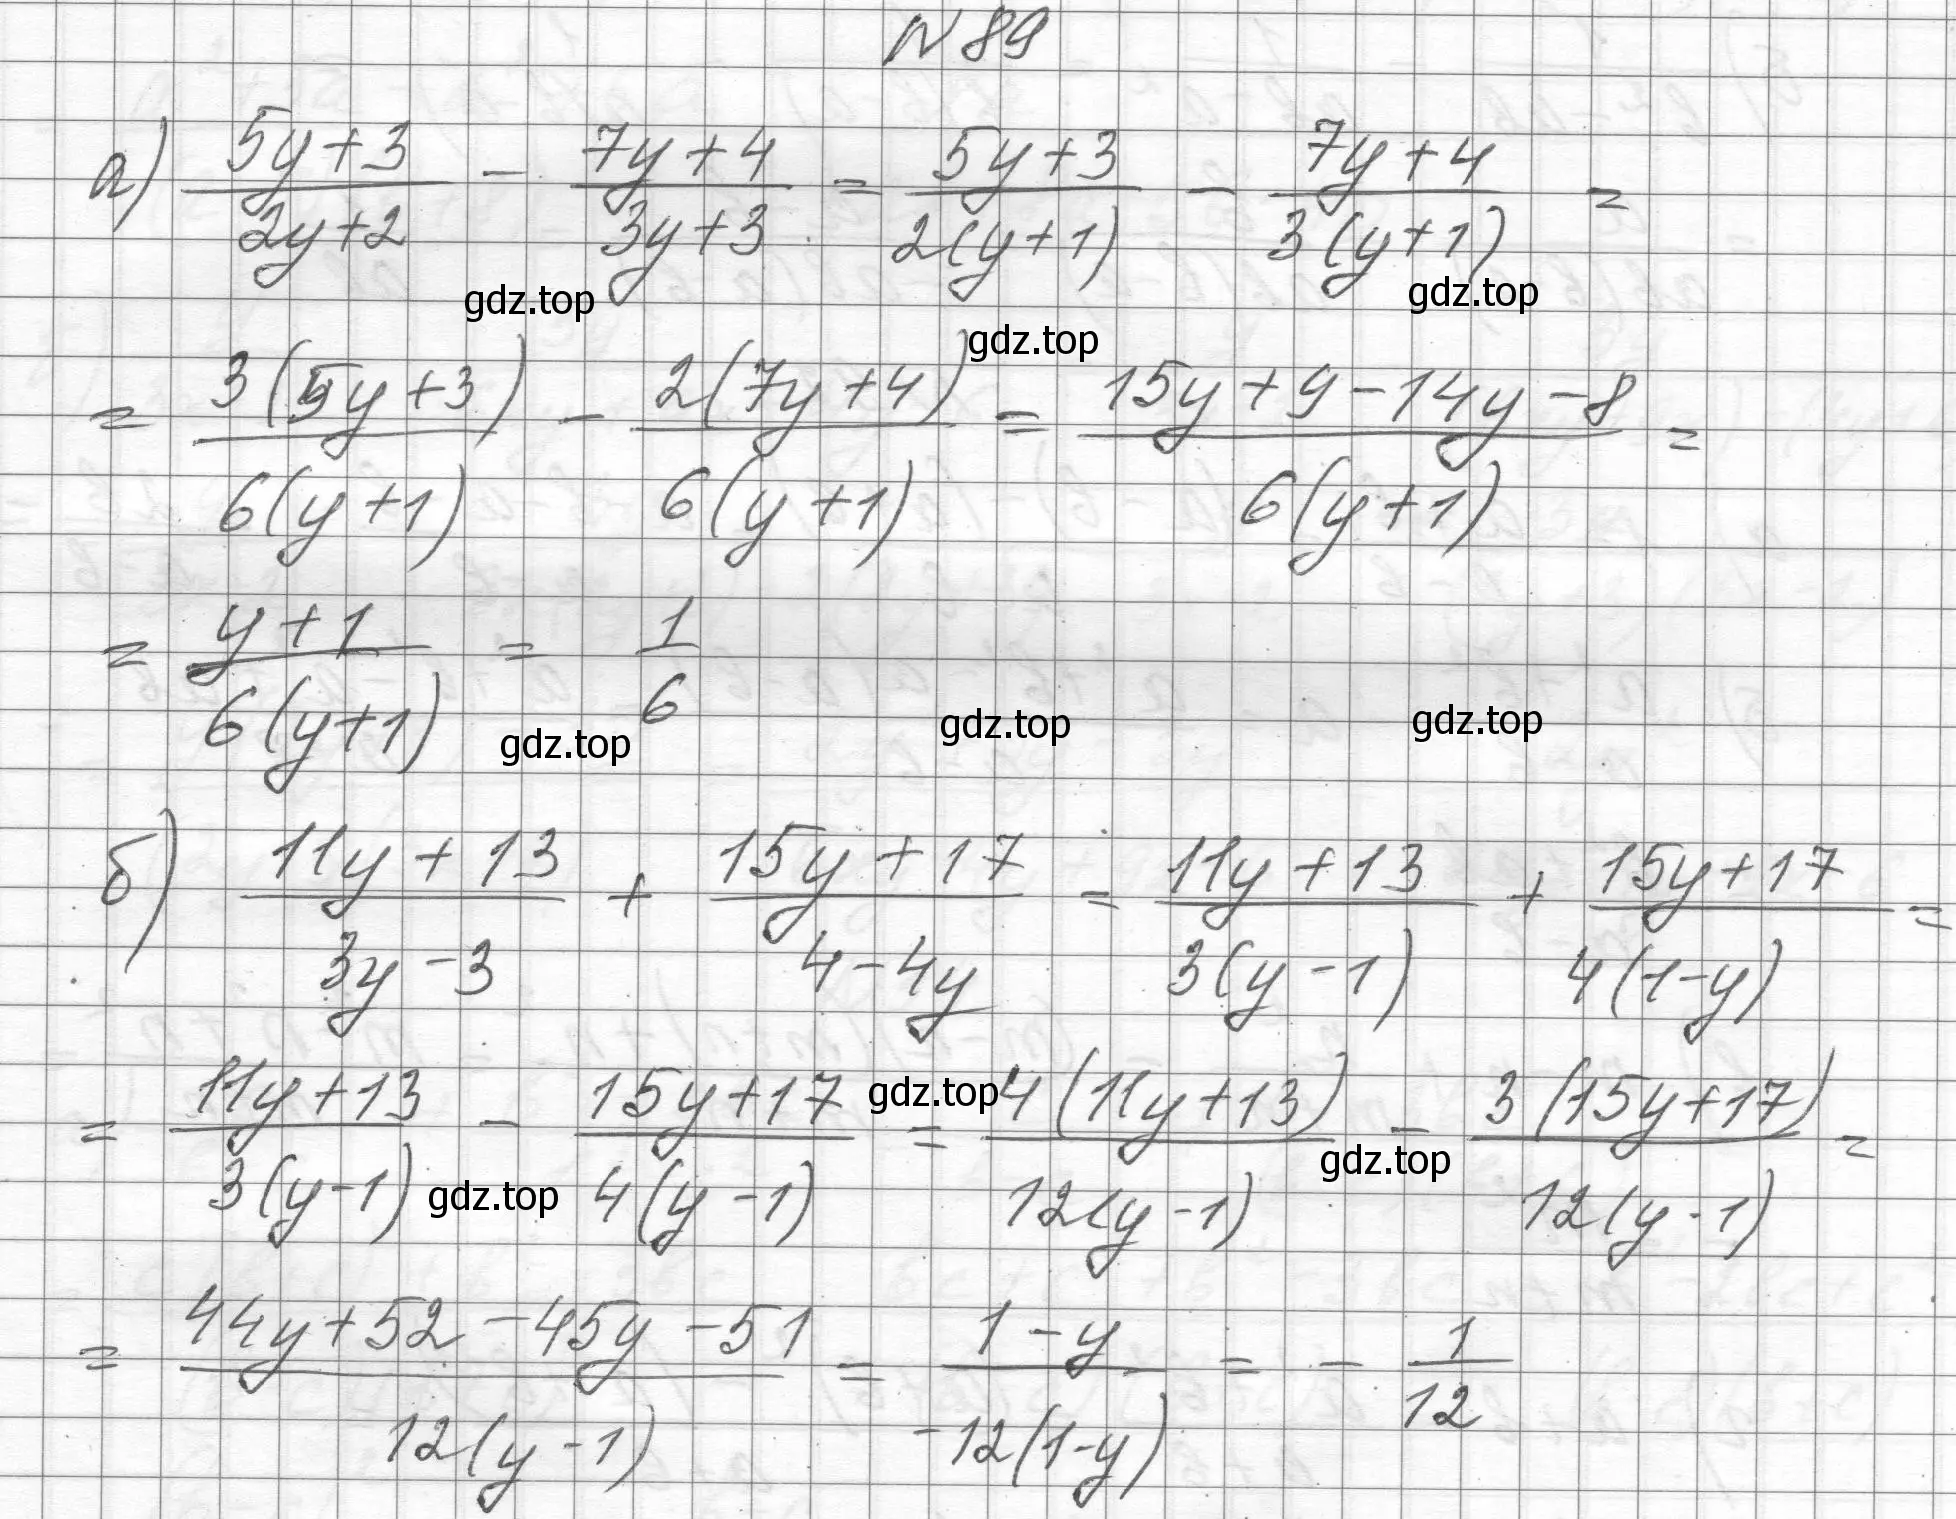 N 89
а) (5y+3)/(2y+2) - (7y+4)/(3y+3) = (5y+3)/(2(y+1)) - (7y+4)/(3(y+1)) =
gdz.top gdz.top gdz.top
= (3(5y+3))/(6(y+1)) - (2(7y+4))/(6(y+1)) = (15y+9-14y-8)/(6(y+1)) =
= (y+1)/(6(y+1)) = 1/6
gdz.top gdz.top gdz.top
б) (11y+13)/(3y-3) + (15y+17)/(4-4y) = (11y+13)/(3(y-1)) + (15y+17)/(4(1-y)) =
= (11y+13)/(3(y-1)) - (15y+17)/(4(y-1)) = (4(11y+13))/(12(y-1)) - (3(15y+17))/(12(y-1)) =
gdz.top gdz.top gdz.top
= (44y+52-45y-51)/(12(y-1)) = (1-y)/(-12(1-y)) = - 1/12